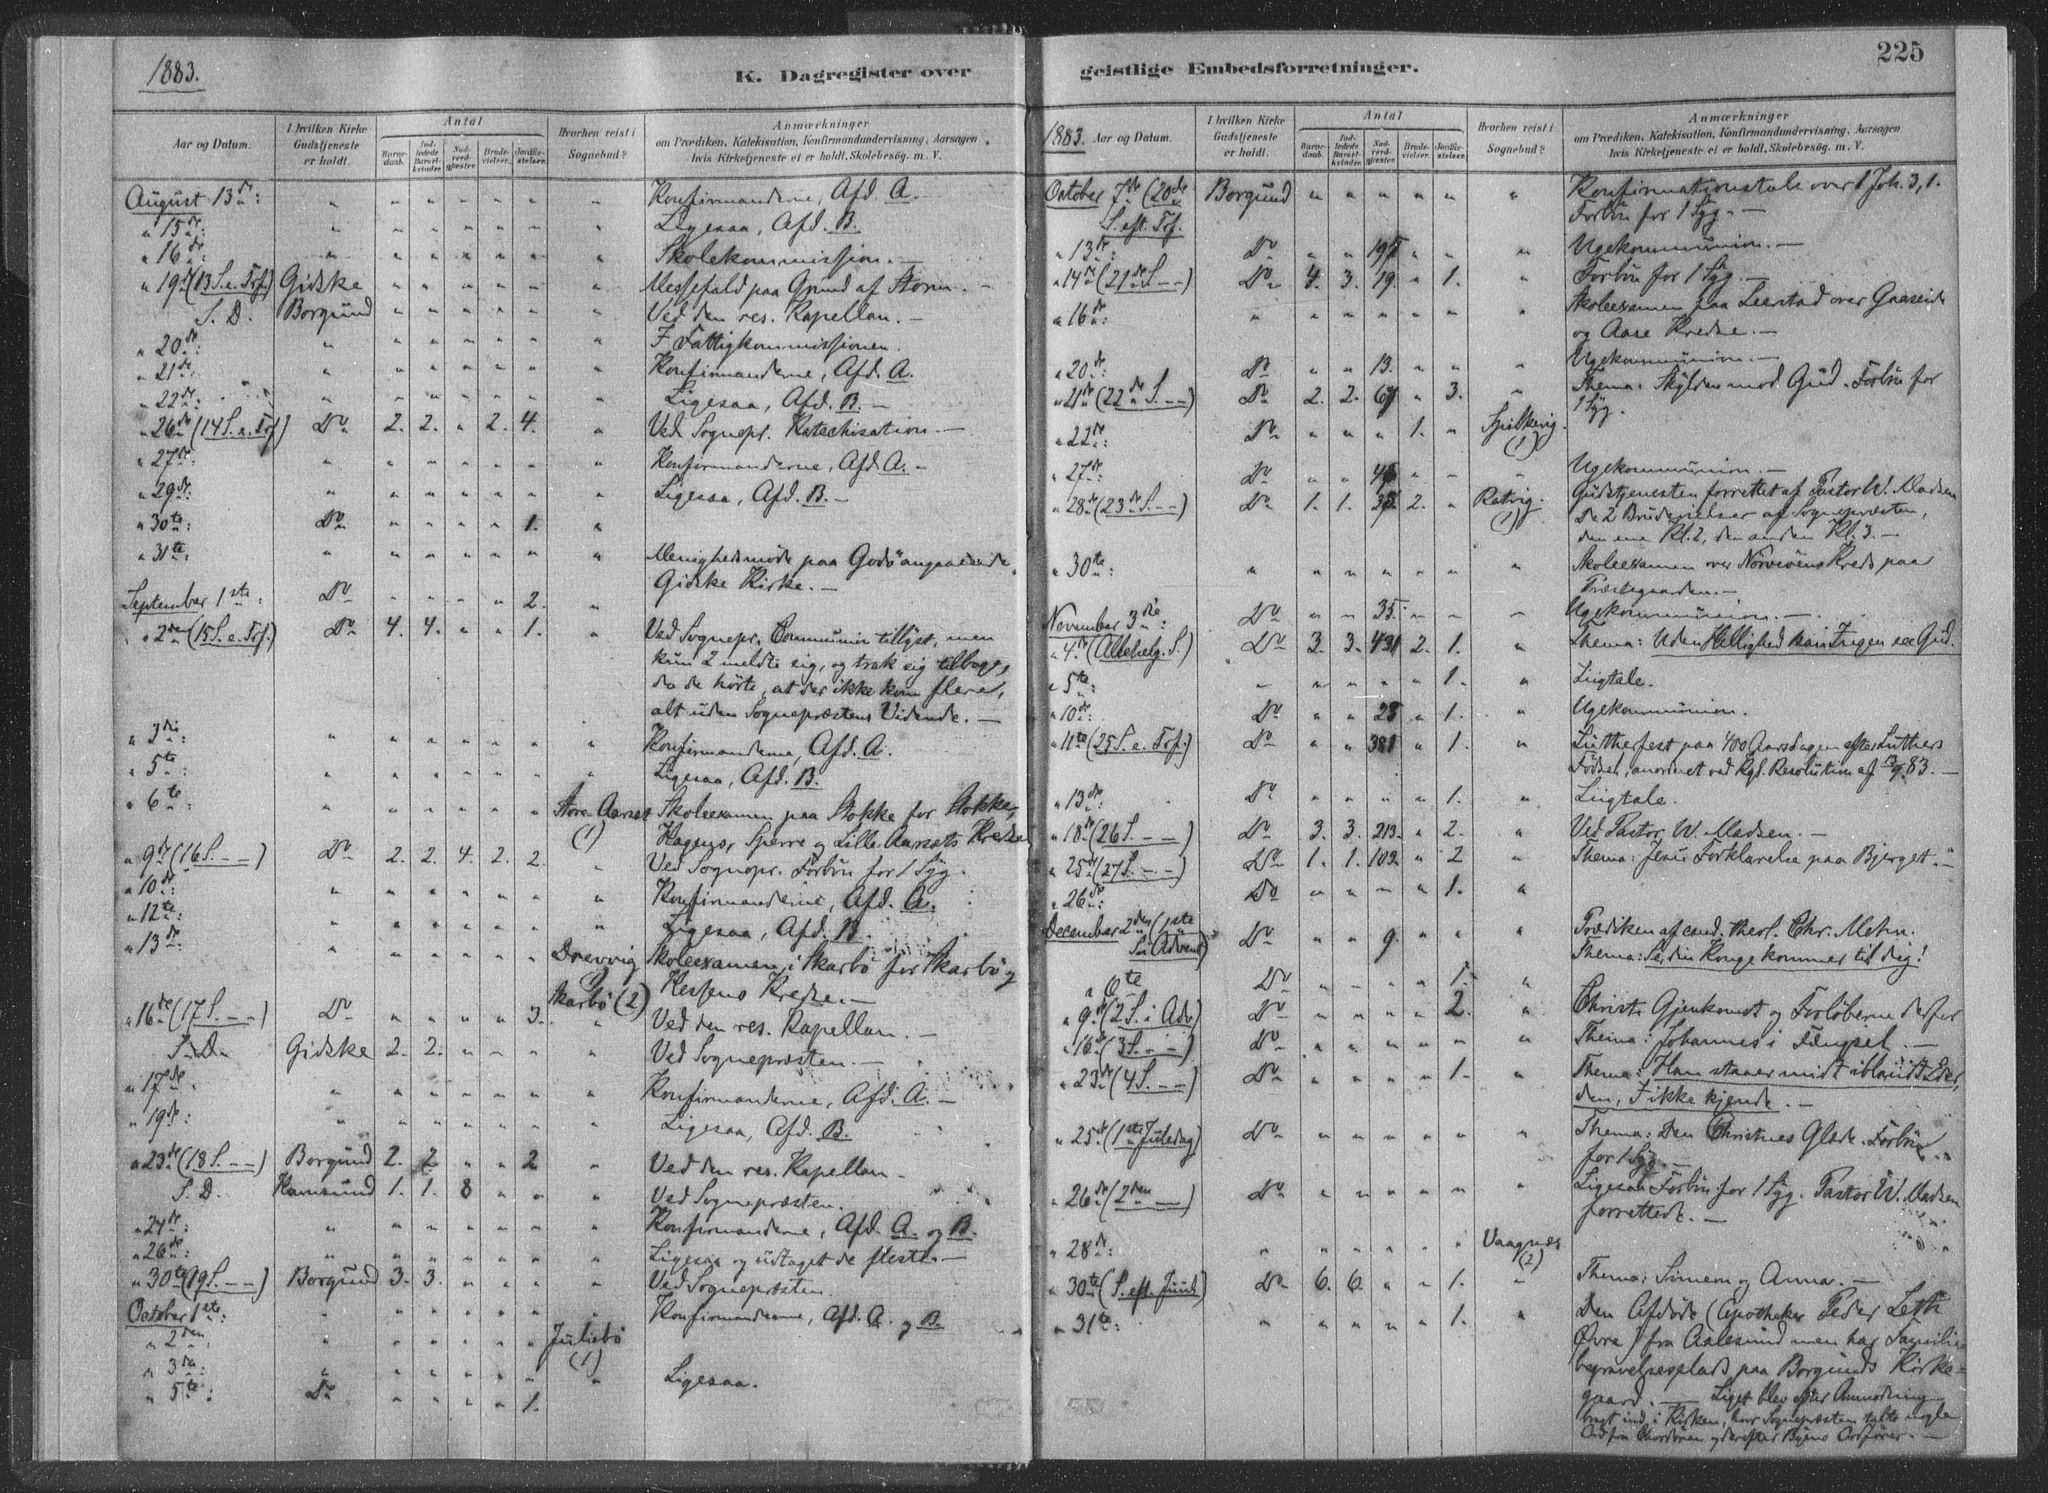 1883.
K. Dagregister over
Aar og Datum. I hvilken Kirke Gudstjeneste er holdt. Antal Barnedaab. Indledede Barselkvinder. Nadverdgjester. Brudevielser. Jordfæstelser. Hvorhen reist i Sognebud? Anmærkninger om Prædiken, Katekisation, Konfirmandundervisning, Aarsagen hvis Kirketjeneste ei er holdt, Skolebesög. m. V.
August 13de: " " " " " " " Konfirmanderne, Afd. A.
" 15de: " " " " " " " Ligesaa, Afd. B.
" 16de " " " " " " " Skolekommission. —
" 19de (13 S. e. Trf.) Gidske " " " " " " Messefald paa Grund af Storm. —
S. D. Borgund " " " " " " Ved den res. Kapellan. —
" 20de: " " " " " " " I Fattigkommissionen.
" 21de: " " " " " " " Konfirmanderne, Afd. A.
" 22de: " " " " " " " Ligesaa, Afd. B. —
" 26de (14 S. e. Trf.) Do 2. 2. " 2. 4. " Ved Sognepr. Katechisation. —
" 27de: " " " " " " " Konfirmanderne, Afd. A. —
" 29de: " " " " " " " Ligesaa, Afd. B. —
" 30te: Do " " " " 1. "
" 31te: " " " " " " " Menighedsmöde paa Godö angaaende
Gidske Kirke. —
September 1ste: Do " " " " 2. "
" 2den (15 S. e. Trf.) Do 4. 4. " " 1. " Ved Sognepr. Communion tillyst, men
kun 2 meldte sig, og trak sig tilbage,
da de hörte, at der ikke kom flere,
alt uden Sognepræstens Vidende. —
" 3die: " " " " " " " Konfirmanderne, Afd. A.
" 5te: " " " " " " " Ligesaa, Afd. B.
" 6te: " " " " " " Store Aarset (1) Skoleexamen paa Stokke for Stokke,
Hagens, Sperre og Lille Aarsets Kredse
" 9de (16 S. — —) Do 2. 2. 4. 2. 2. Ved Sognepr. Forbön for 1 Syg.
" 10de: " " " " " " " Konfirmanderne, Afd. A.
" 12te: " " " " " " " Ligesaa, Afd. B.
" 13de: " " " " " " Drevvig Skoleexamen i Skarbö for Skarbö og
Skarbö (2) Hessens Kredse. —
" 16de (17 S. — —) Do " " " " 3. " Ved den res. Kapellan. —
S. D. Gidske 2. 2. " " " " Ved Sognepræsten. —
" 17de. " " " " " " " Konfirmanderne, Afd. A. —
" 19de: " " " " " " " Ligesaa, Afd. B.
" 23de (18 S. — —) Borgund 2. 2. " " 2 " Ved den res. Kapellan. —
S. D. Hamsund 1. 1. 8 " " " Ved Sognepræsten.
" 24de: " " " " " " " Konfirmanderne, Afd. A. og B.
" 26de: " " " " " " " Ligesaa og udtaget de fleste. —
" 30te (19 S. — —) Borgund 3. 3. " " " " Ved Sognepræsten.
October 1ste: " " " " " " " Konfirmanderne, Afd. A. og B.
" 2den " " " " " " Juliebö (1)
" 3die: " " " " " " " Ligesaa.
" 5te: Do " " " " 1.
225
geistlige Embedsforretninger.
1883. Aar og Datum. I hvilken Kirke Gudstjeneste er holdt. Antal Barnedaab. Indledede Barselkvinder. Nadverdgjester. Brudevielser. Jordfæstelser. Hvorhen reist i Sognebud? Anmærkninger om Prædiken, Katekisation, Konfirmandundervisning, Aarsagen hvis Kirketjeneste ei er holdt, Skolebesög. m. V.
October 7de (20de S. eft. Trf. Borgund " " " " " " Konfirmationstale over 1 Joh. 3, 1.
Forbön for 1 Syg. —
" 13de: Do " " 195 " " " Ugekommunion. —
" 14de (21de S — —) Do 4. 3. 19. " 1. " Forbön for 1 Syg. —
" 16de: " " " " " " " Skoleexamen paa Leerstad over Gaaseide
og Aase Kredse. —
" 20de: Do " " 13. " " " Ugekommunion. —
" 21de (22de S — —) Do 2. 2. 67 " 3. " Thema: Skylden mod Gud. Forbön for
1 Syg.
" 22de: Do " " " 1. " Spilkevig. (1)
" 27de: Do " " 45 " " " Ugekommunion. —
" 28de (23de S — —) Do 1. 1. 38. 2. " Ratvig. (1) Gudstjenesten forrettet af Pastor W. Madsen
De 2 Brudevielser af Sognepræsten,
den ene Kl. 2, den anden Kl. 3. —
" 30te: " " " " " " " Skoleexamen over Nörvöens Kreds paa
Præstegaarden. —
November 3die: Do " " 35. " " " Ugekommunion. —
" 4de (Allehelg. S.) Do 3. 3. 431 2. 1. " Thema: Uden Hellighed kan Ingen see Gud.
" 5te: " " " " " 1. " Liigtale.
" 10de: Do " " 28 " 1. " Ugekommunion.
" 11te (25 S. e. Trf.) Do " " 381 " 1. " Lutherfest paa 400 Aarsdagen efter Luthers
Födsel, anordnet ved Kgl. Resolution af 83. —
" 13de: Do " " " " 1. " Liigtale.
" 18de (26 S. — —) Do 3. 3. 213. " 2. " Ved Pastor W. Madsen. —
" 25de (27 S. — —) Do 1. 1. 102. " 2 " Thema: Jesu Forklarelse paa Bjerget. —
" 26de: Do " " " " 1. "
December 2den (1ste S. i Advent) Do " " 9. " " " Prædiken af cand. theol. Chr. Mehn.
Thema: Se, din Konge kommer til dig!
" 6te Do " " " " 1. "
" 9de (2 S. i Adv.) Do " " " " 2. " Christi Gjenkomst og Forlöberne derfor
" 16de (3 S. — —) Do " " " " " " Thema: Johannes i Fængsel. —
" 23de (4 S. — —) Do " " " " 1. " Thema: Han staaer midt iblandt Eder,
den, I ikke kjende. —
" 25de (1ste Juledag) Do " " " " " " Thema: Den Christnes Glæde. Forbön
for 1 Syg. —
" 26de (2den — —) Do " " " " " " Ligesaa Forbön for 1 Syg. Pastor W. Madsen
forrettede. —
" 28de: " " " " " " Vaagnæs (2)
" 30te (S. eft. Juul) Do 6. 6. " " 1. " Thema: Simeon og Anna. —
" 31te: " " " " " 1. " Den Afdöde (Apotheker Peder Leth
Övre) fra Aalesund men har Familie
begravelsesplads paa Borgunds Kirke-
gaard. — Liget blev efter Anmodning
bragt ind i Kirken, hvor Sognepræsten talte nogle
Ord fra Chordören og derefter Byens Ordförer. —